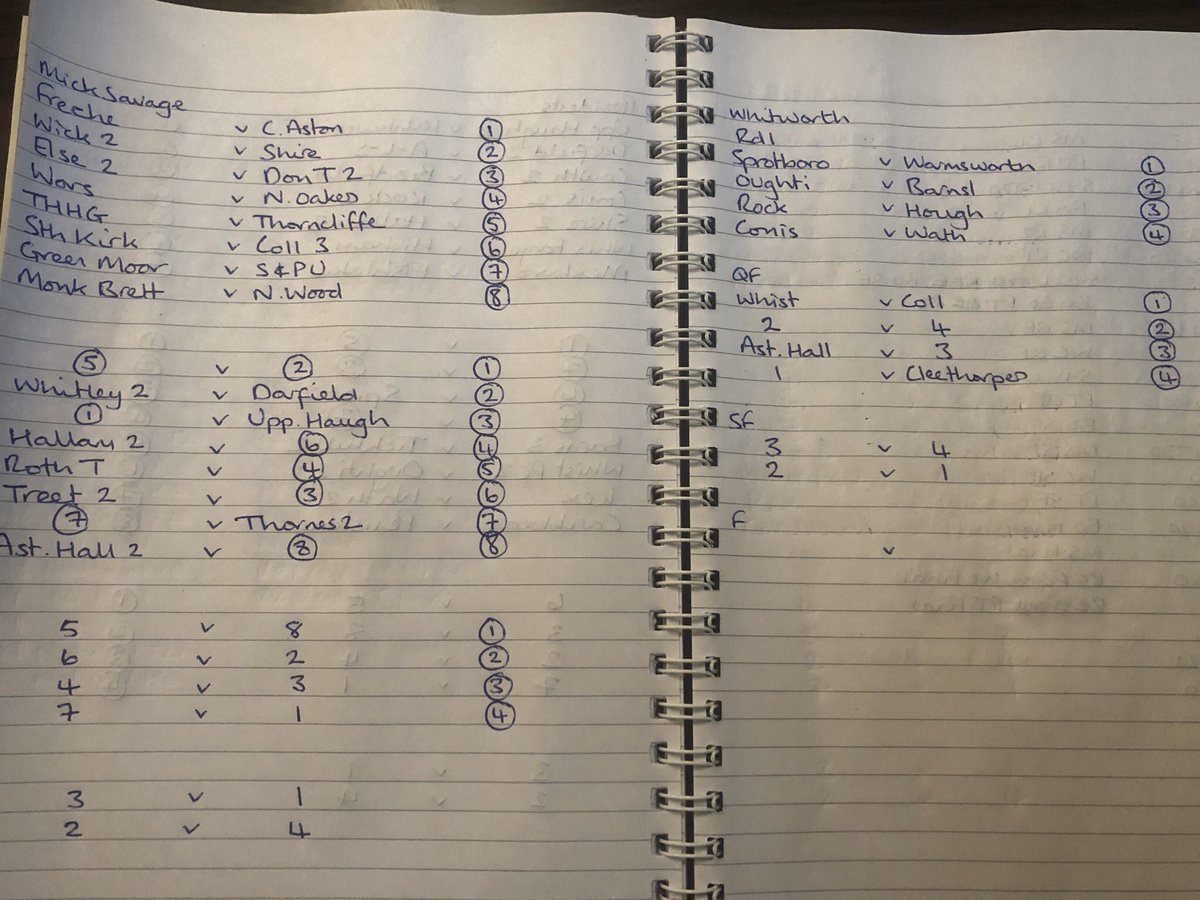 Mick Savage
Freche v C. Aston ①
Wick 2 v Shire ②
Else 2 v Don T 2 ③
Wors v N. Oakes ④
THHG v Thorncliffe ⑤
Sth Kirk v Coll 3 ⑥
Green Moor v S&PU ⑦
Monk Brett v N. Wood ⑧
⑤ v ② ①
Whitley 2 v Darfield ②
① v Upp. Haugh ③
Hallam 2 v ⑥ ④
Roth T v ④ ⑤
Treet 2 v ③ ⑥
⑦ v Thornes 2 ⑦
Ast. Hall 2 v ⑧ ⑧
5 v 8 ①
6 v 2 ②
4 v 3 ③
7 v 1 ④
3 v 1
2 v 4
Whitworth
Rd1
Sprotboro v Warmsworth ①
Oughti v Barnsl ②
Rock v Hough ③
Conis v Wath ④
QF
Whist v Coll ①
2 v 4 ②
Ast. Hall v 3 ③
1 v Cleethorpes ④
SF
3 v 4
2 v 1
F
v